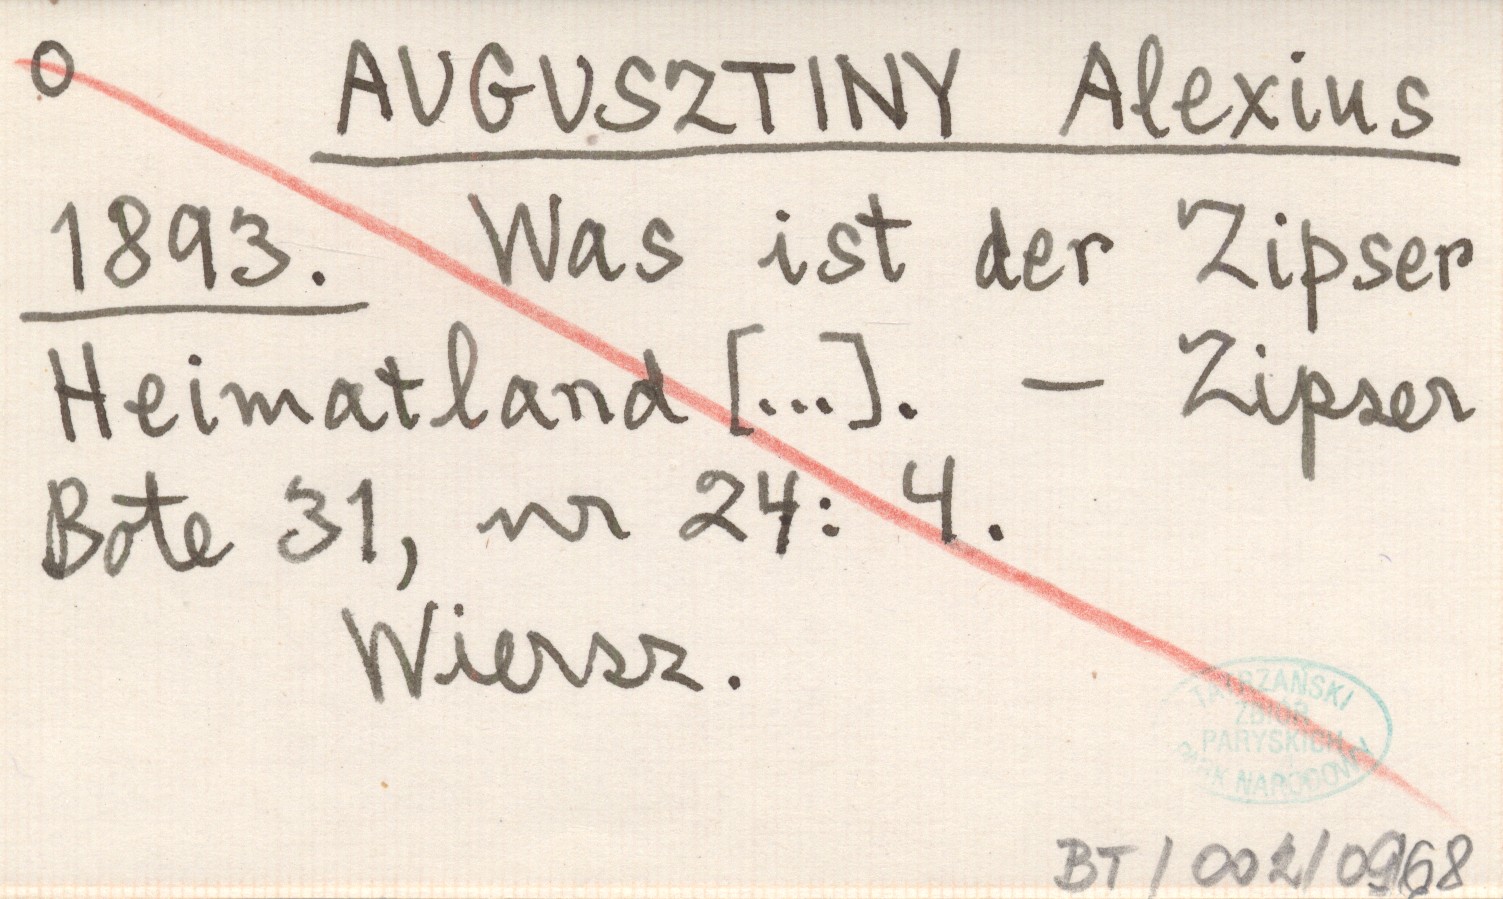 O AUGUSZTINY Alexius
1893. Was ist der Zipser
Heimatland [...]. — Zipser
Bote 31, nr 24: 4.
Wiersz.
TATRZAŃSKI
ZBIÓR
PARYSKICH
PARK NARODOWY
BT/002/0968